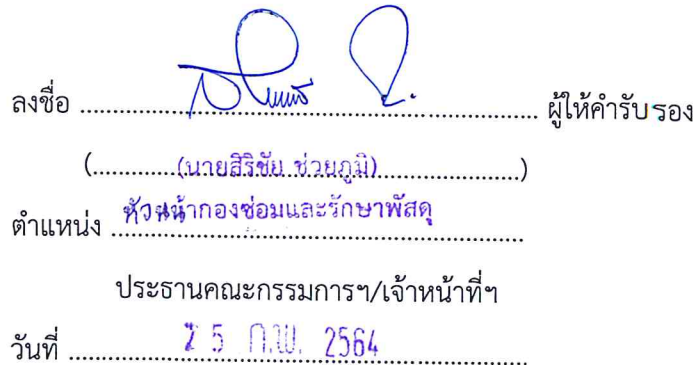 ลงชื่อ ................................ ผู้ให้คำรับรอง
(............(นายสิริชัย ช่วยภูมิ)............)
ตำแหน่ง หัวหน้ากองซ่อมและรักษาพัสดุ
ประธานคณะกรรมการฯ/เจ้าหน้าที่ฯ
วันที่ 25 ก.พ. 2564